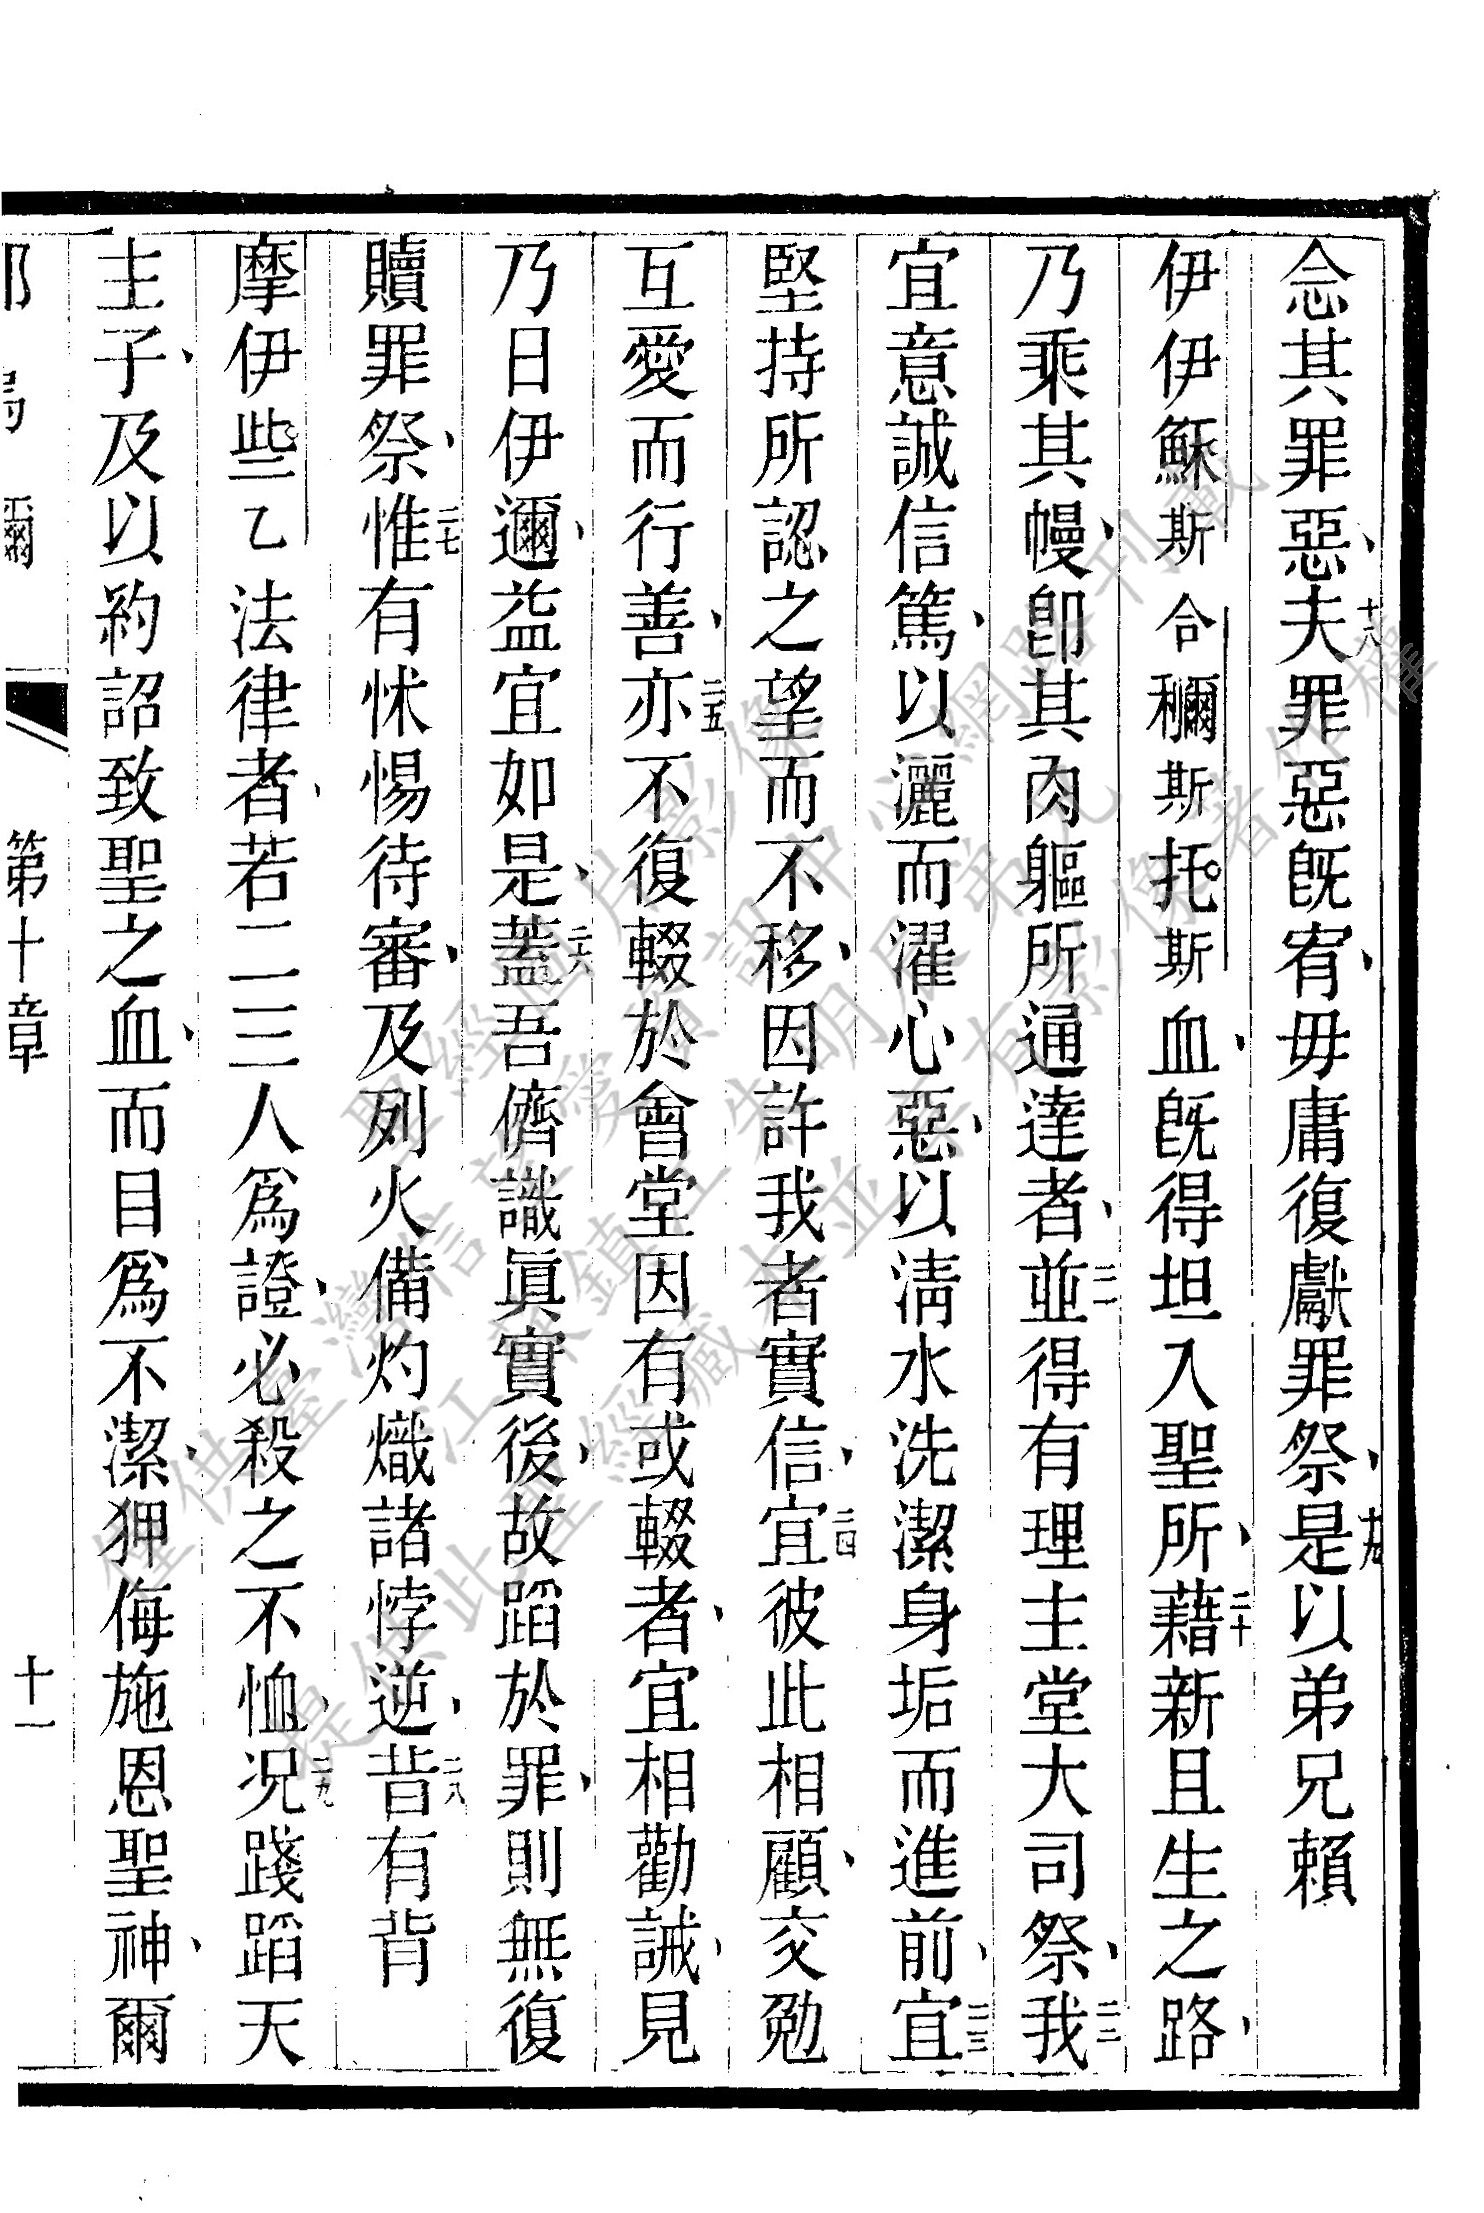 念其罪惡、十八夫罪惡旣宥、毋庸復獻罪祭、十九是以弟兄賴
伊伊穌斯合利爾斯托斯血、旣得坦入聖所、二十藉新且生之路、
乃乘其幔、卽其肉軀所通達者、二一並得有理主堂大司祭、二二我
宜意誠信篤、以灑而濯心惡、以淸水洗潔身垢而進前、二三宜
堅持所認之望而不移、因許我者實信、二四宜彼此相顧、交勉
互愛而行善、二五亦不復輟於會堂因有或輟者、宜相勸誡、見
乃日伊邇、益宜如是、二六蓋吾儕識眞實後、故蹈於罪、則無復
贖罪祭、二七惟有怵惕待審、及列火備灼熾諸悖逆、二八昔有背
摩伊些乙法律者、若二三人爲證、必殺之不恤、二九况踐蹈天
主子、及以約詔致聖之血、而目爲不潔、狎侮施恩聖神、爾
第十章
十一
僅供臺灣信望愛資訊中心網路刊載
提供此聖經藏本並享有影像著作權